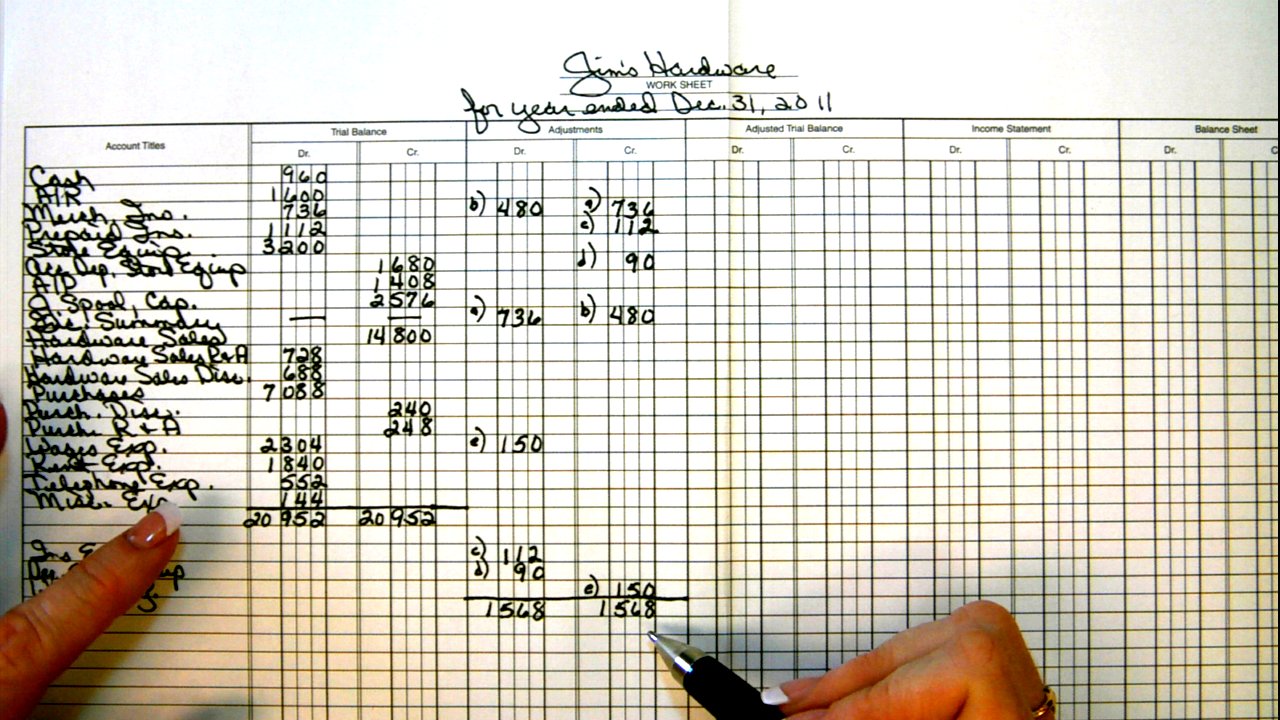 Jim's Hardware
WORK SHEET
for year ended Dec. 31, 2011
Account Titles Trial Balance Adjustments Adjusted Trial Balance Income Statement Balance Sheet
Dr. Cr. Dr. Cr. Dr. Cr. Dr. Cr. Dr. C
Cash 960
A/R 1600
Merch. Ins. 736 b) 480 a) 736
Prepaid Ins. 1112 c) 112
Store Equip. 3200
Acc. Dep. Store Equip 1680 d) 90
A/P 1408
O. Spool, Cap. 2576
Inc. Summary — — a) 736 b) 480
Hardware Sales 14800
Hardware Sales R&A 728
Hardware Sales Disc. 688
Purchases 7088
Purch. Disc. 240
Purch. R&A 248
Wages Exp. 2304 e) 150
Rent Exp. 1840
Telephone Exp. 552
Misc. Exp 144
20952 20952
Ins E c) 112
d) 90
e) 150
1568 1568